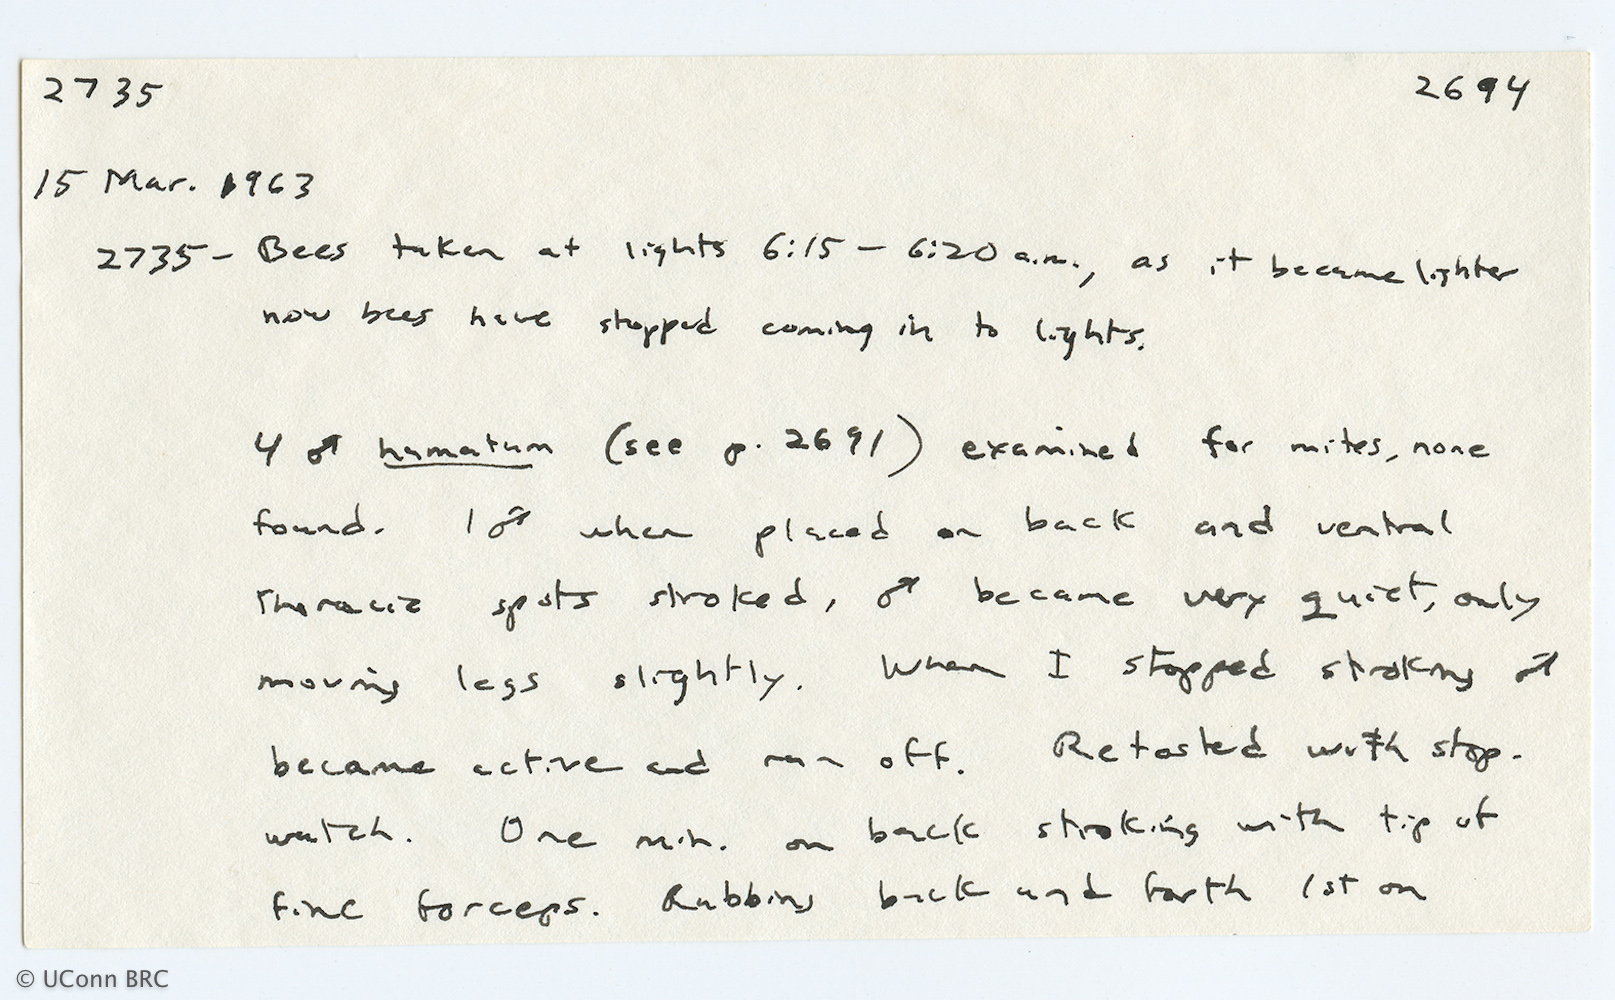 2735 2694
15 Mar. 1963
2735- Bees taken at lights 6:15 - 6:20 a.m., as it became lighter
now bees have stopped coming in to lights.
4 ♂ hamatum (see p. 2691) examined for mites, none
found. 1 ♂ when placed on back and ventral
thoracic spots stroked, ♂ became very quiet, only
moving legs slightly. When I stopped stroking ♂
became active and ran off. Retested with stop-
watch. One min. on back stroking with tip of
fine forceps. Rubbing back and forth 1st on
© UConn BRC